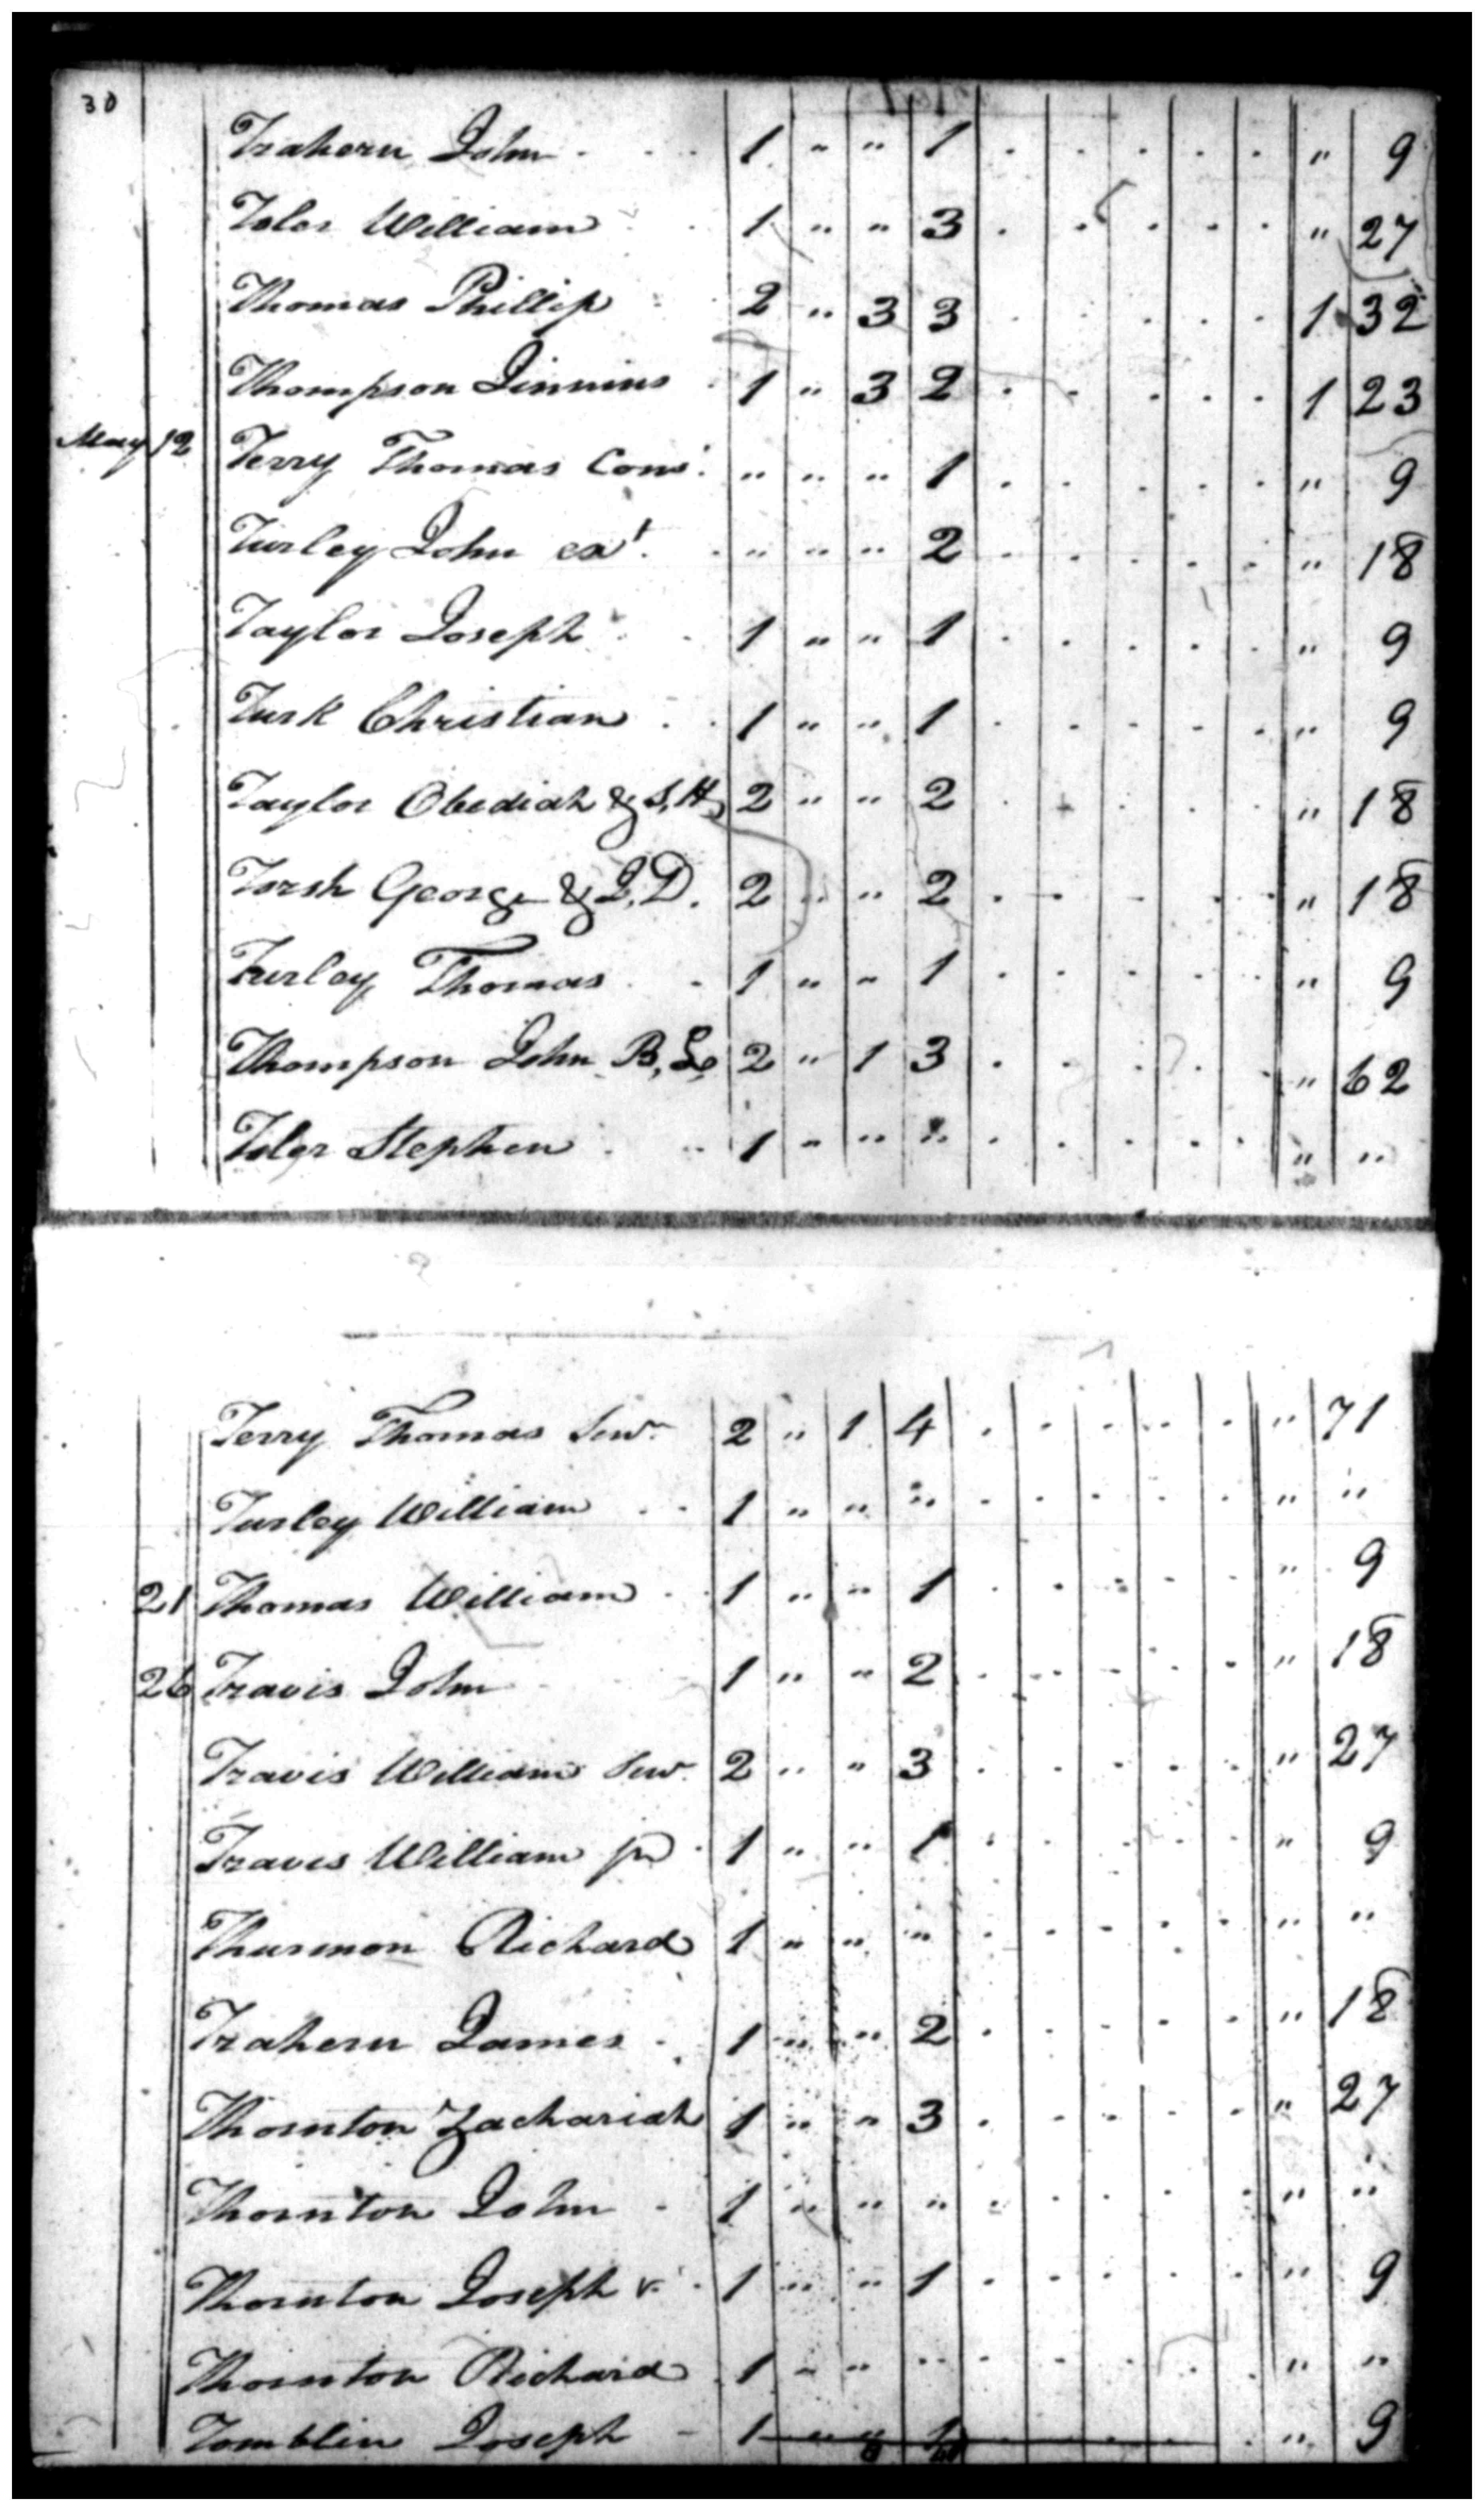 30
Trahern John 1 " " 1 . . . . . " 9
Toler William 1 " " 3 . . . . . " 27
Thomas Phillip 2 " 3 3 . . . . . 1 32
Thompson Jinnins 1 " 3 2 . . . . . 1 23
May 12 Terry Thomas Cons. " " " 1 . . . . . " 9
Turley John ext. " " " 2 . . . . . " 18
Taylor Joseph 1 " " 1 . . . . . " 9
Turk Christian 1 " " 1 . . . . . " 9
Taylor Obediah & S, H, 2 " " 2 . . . . . " 18
Torsh George & J. D. 2 " " 2 . . . . . " 18
Turley Thomas 1 " " 1 . . . . . " 9
Thompson John B, 2 " 1 3 . . . . . " 62
Toler Stephen 1 " " " . . . . . " "
Terry Thomas Senr 2 " 1 4 . . . . . " 71
Turley William 1 " " " . . . . . " "
21 Thomas William 1 " " 1 . . . . . " 9
26 Travis John 1 " " 2 . . . . . " 18
Travis William Senr. 2 " " 3 . . . . . " 27
Travis William jr 1 " " 1 . . . . . " 9
Thurmon Richard 1 " " " . . . . . " "
Trahern James 1 " " 2 . . . . . " 18
Thornton Zachariah 1 " " 3 . . . . . " 27
Thornton John 1 " " " . . . . . " "
Thornton Joseph 1 " " 1 . . . . . " 9
Thornton Richard 1 " " " . . . . . " "
Tomblin Joseph 1 " " 1 . . . . . " 9